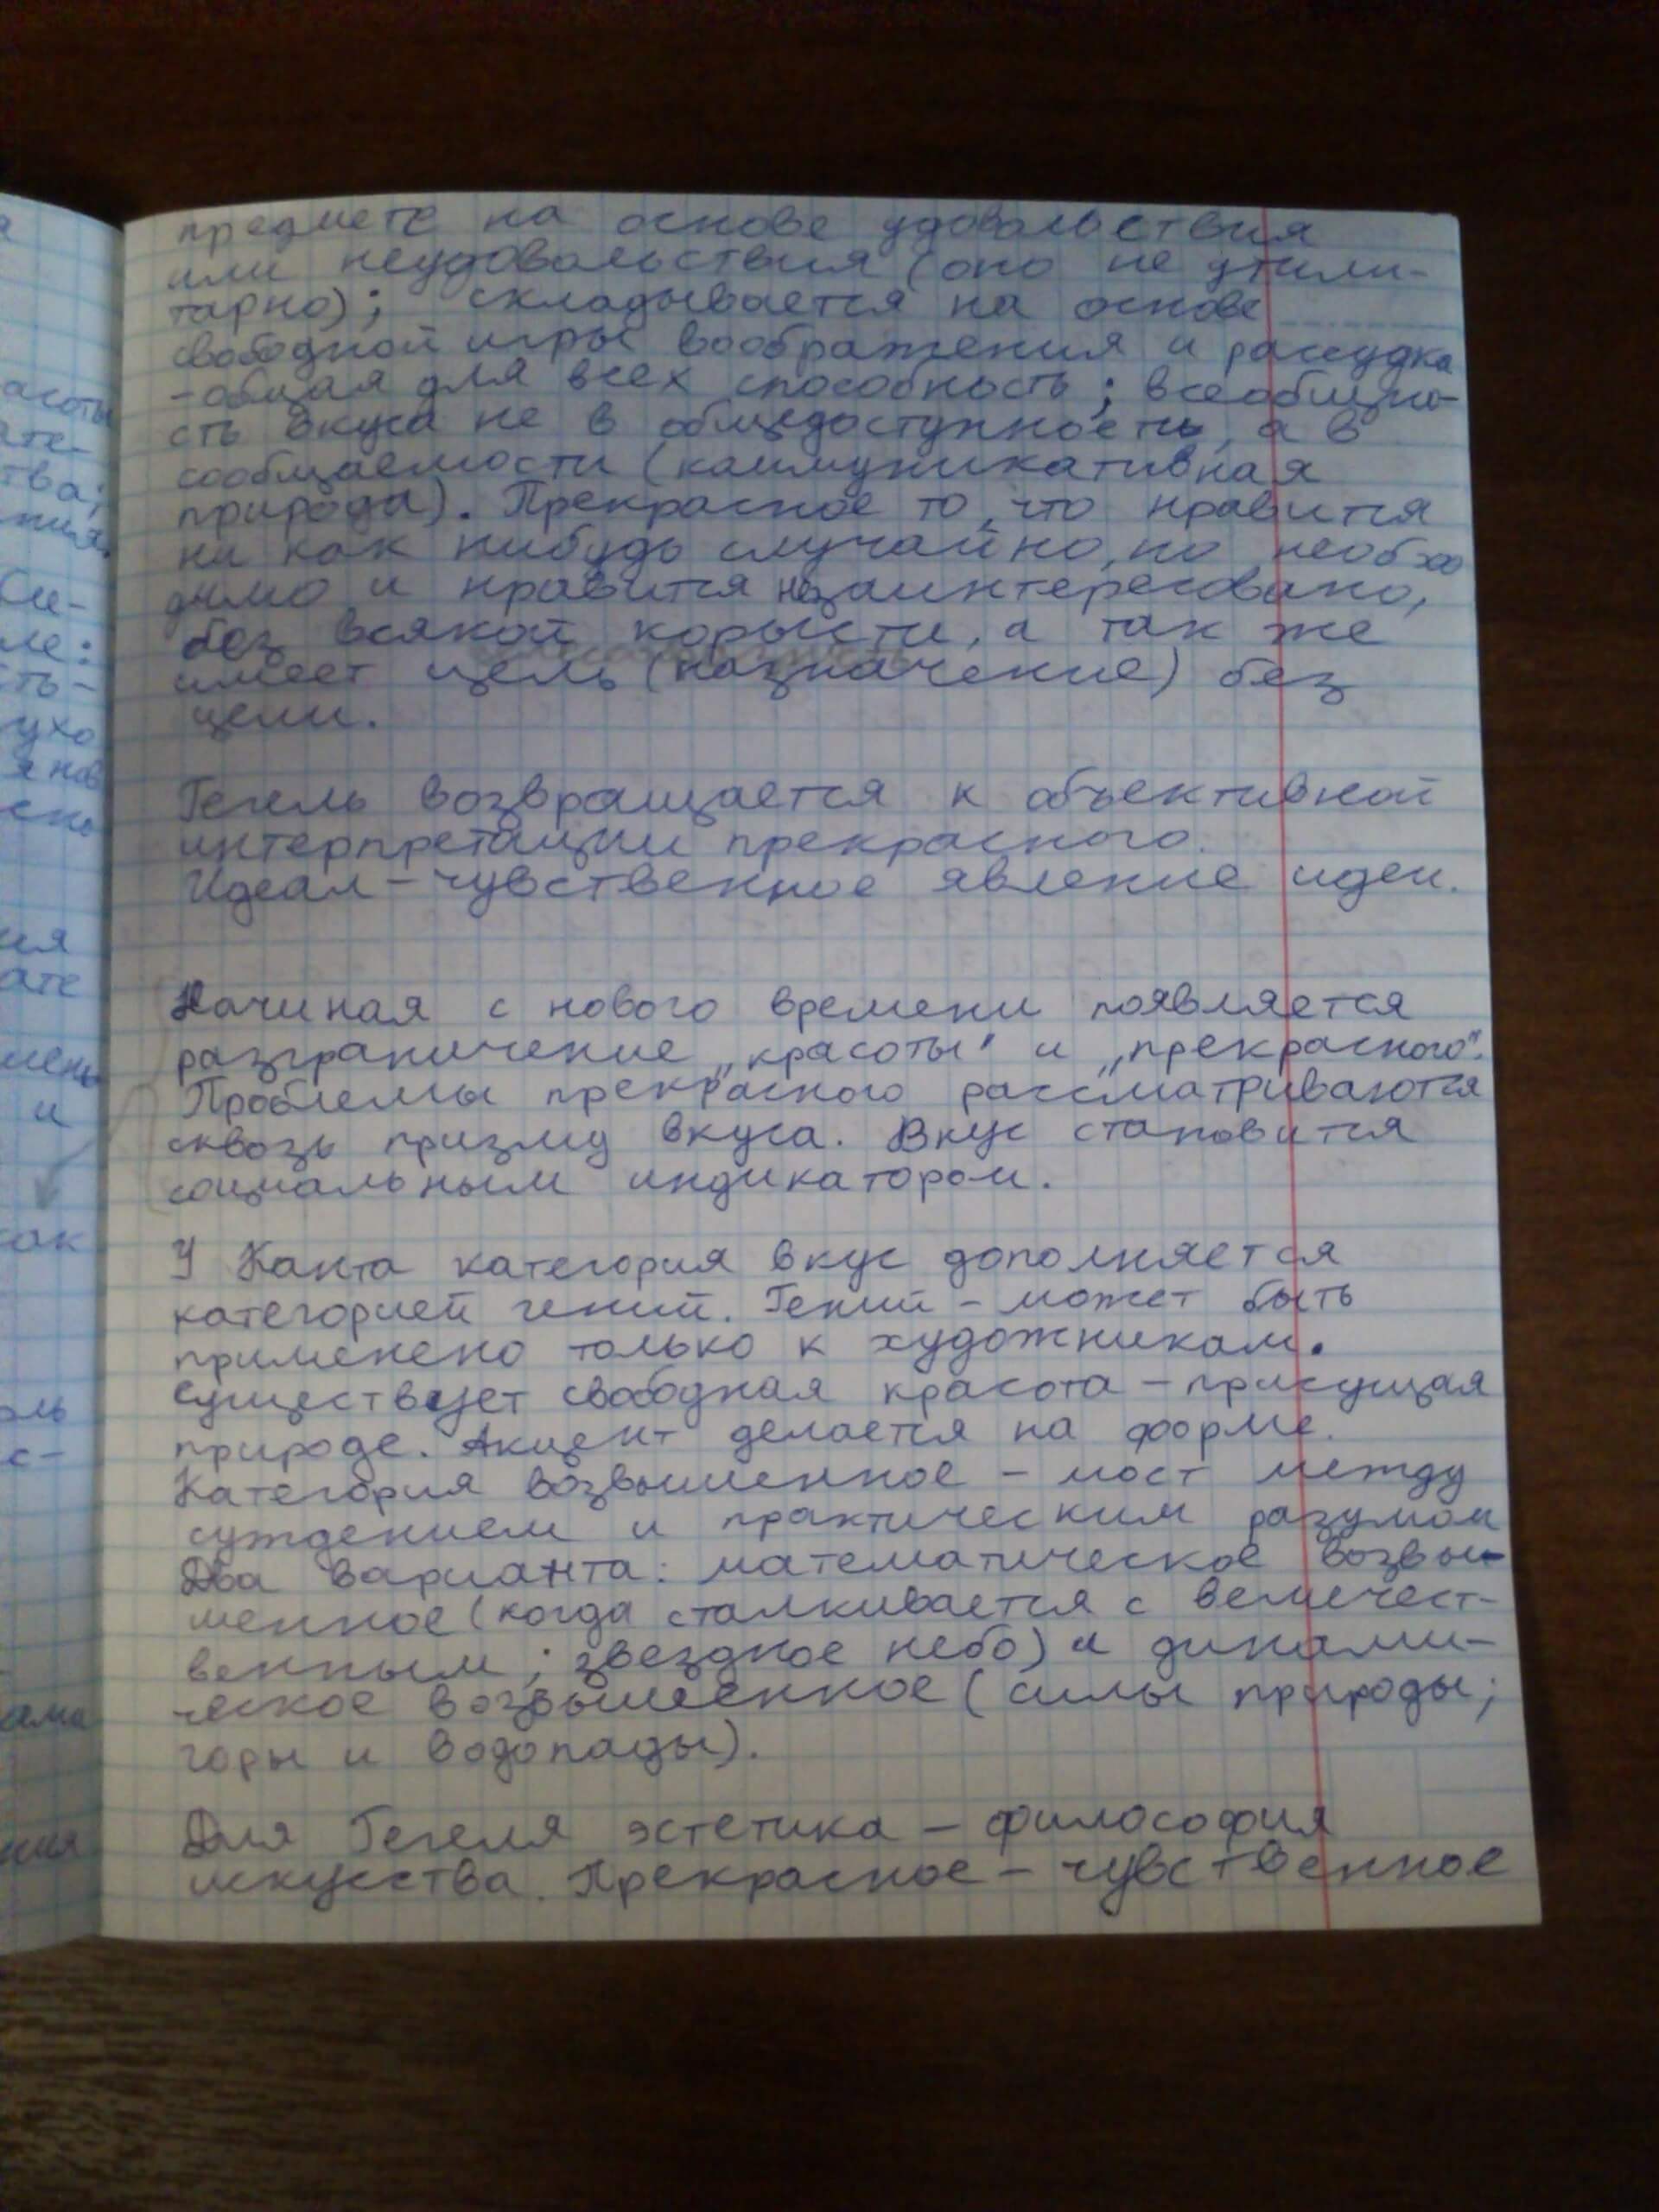 предмете на основе удовольствия
или неудовольствия (оно не утили-
тарно); складывается на основе
свободной игры воображения и рассудка
-общая для всех способность; всеобщно-
сть вкуса не в общедоступность, а в
сообщаемости (каммуникативная
природа). Прекрасное то, что нравится
ни как нибудь случайно, но необхо
димо и нравится незаинтересовано,
без всякой корысти, а так же
имеет цель (назначение) без
цели.
Гегель возвращается к объективной
интерпретации прекрасного.
Идеал - чувственное явление идеи.
Начиная с нового времени появляется
разграничение „красоты" и „прекрасного".
Проблемы прекрасного рассматриваются
сквозь призму вкуса. Вкус становится
социальным индикатором.
У Канта категория вкус дополняется
категорией гений. Гений - может быть
применено только к художникам.
Существует свободная красота - присущая
природе. Акцент делается на форме.
Категория возвышенное - мост между
суждением и практическим разумом
Два варианта: математическое возвы-
шенное (когда сталкивается с величест-
венным; звездное небо) и динами-
ческое возвышенное (силы природы;
горы и водопады).
Для Гегеля эстетика - философия
искусства. Прекрасное - чувственное